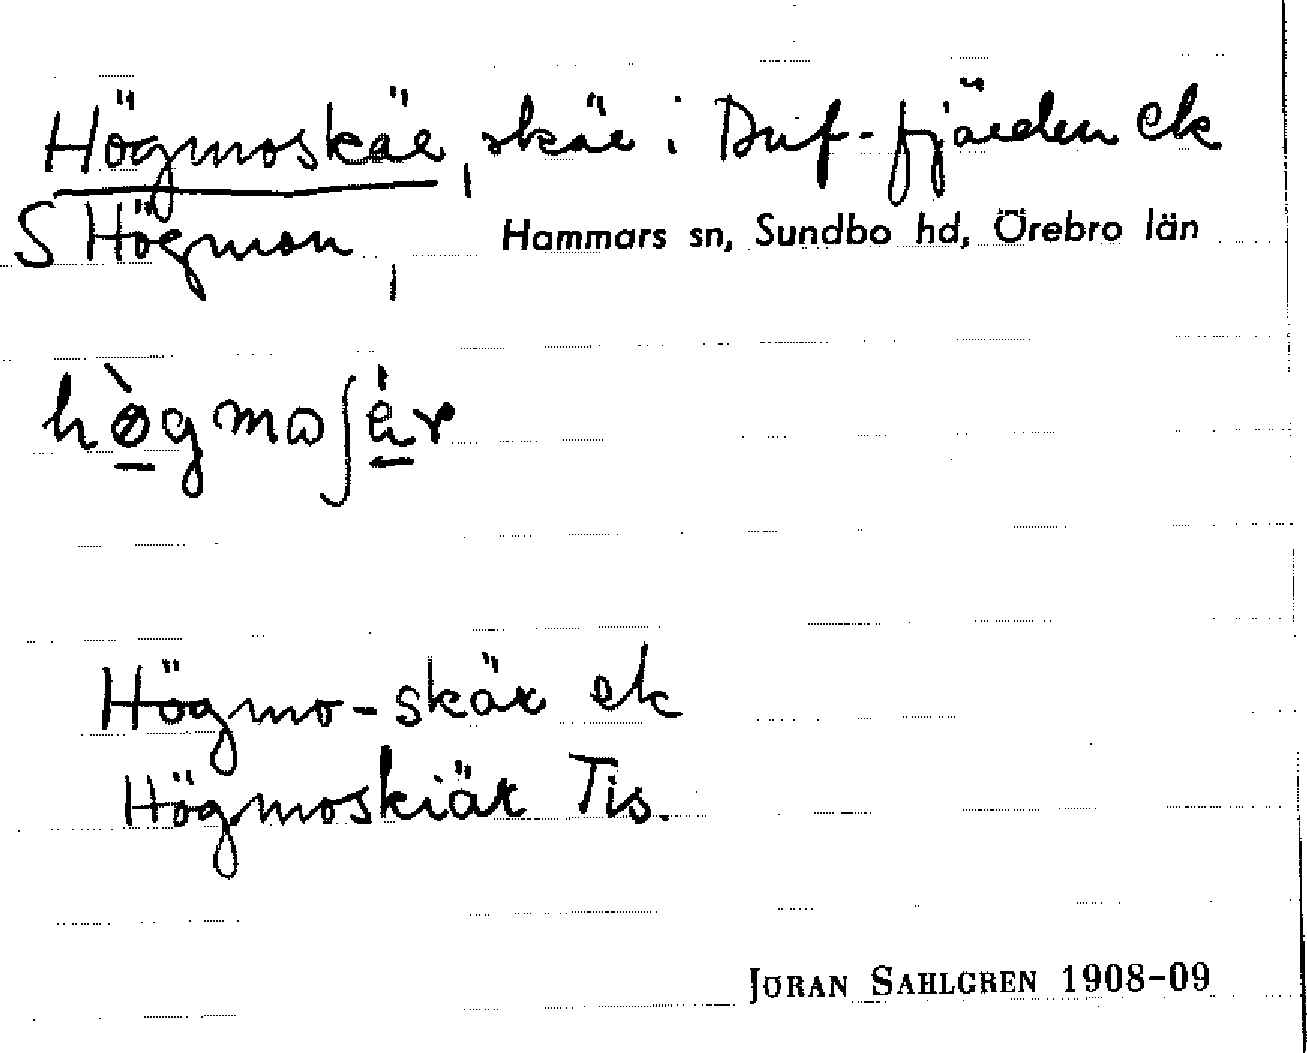 Högmoskär, skär i Duf-fjärden ek
S Högmon, Hammars sn, Sundbo hd, Örebro län
hø̀gmoʃèr
Högmo-skär ek
Högmoskiär Tis.
JÖRAN SAHLGREN 1908-09